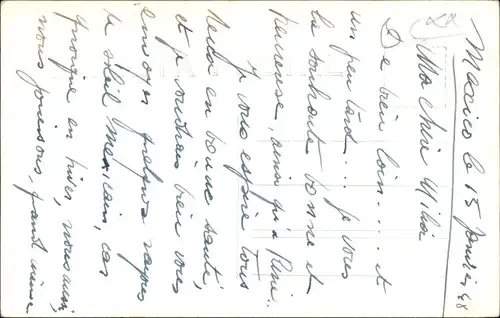 Mexico le 15 Janvier 48
Ma chère
De bien loin.... et
un peu tard... je vous
la souhaite bonne et
heureuse, ainsi qu'à René.
Je vous espère tous
deux en bonne santé,
et je voudrais bien vous
envoyer quelques rayons
de soleil Mexicain, car
quoique en hiver, nous
nous jouissons quand même